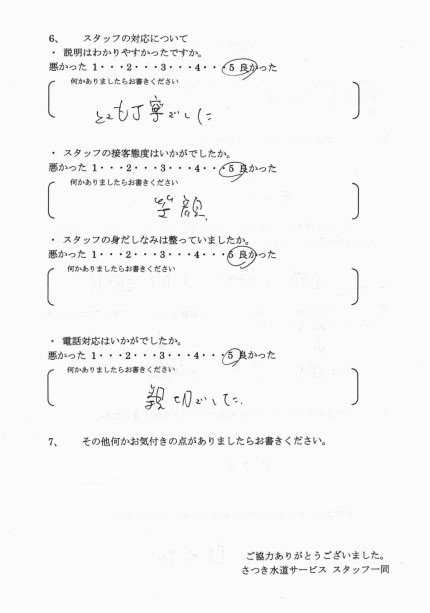 6、 スタッフの対応について
・ 説明はわかりやすかったですか。
悪かった 1・・・2・・・3・・・4・・・5 良かった
何かありましたらお書きください
とても丁寧でした
・ スタッフの接客態度はいかがでしたか。
悪かった 1・・・2・・・3・・・4・・・5 良かった
何かありましたらお書きください
笑顔
・ スタッフの身だしなみは整っていましたか。
悪かった 1・・・2・・・3・・・4・・・5 良かった
何かありましたらお書きください
・ 電話対応はいかがでしたか。
悪かった 1・・・2・・・3・・・4・・・5 良かった
何かありましたらお書きください
親切でした.
7、 その他何かお気付きの点がありましたらお書きください。
ご協力ありがとうございました。
さつき水道サービス スタッフ一同